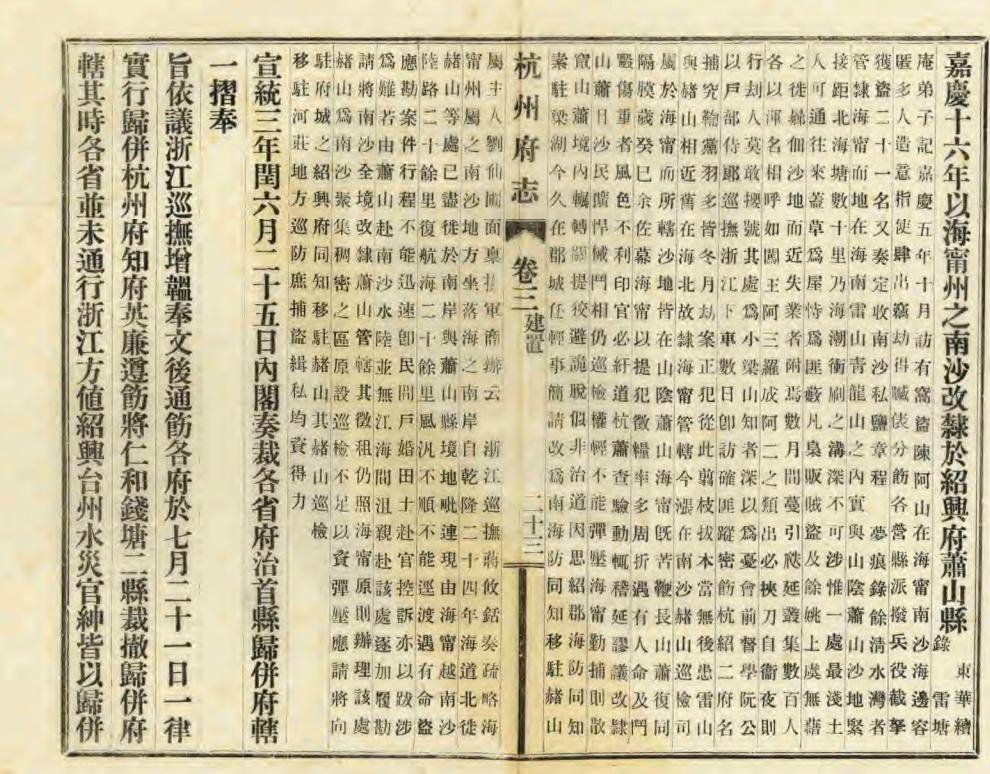 嘉慶十六年以海甯州之南沙改隸於紹興府蕭山縣東華續錄　雷塘
庵弟子記嘉慶五年十月訪有窩盜陳阿山在海甯南沙海邊容
匿多人造意指使肆出竊劫得贓俵分飭各營縣派撥兵役截拏
獲盜二十一名又奏定收南沙私鹽章程　夢痕錄餘清水灣者
管隸海甯而地在海南雷山青龍山之內實與山陰蕭山沙地緊
接距北海塘數十里乃海潮衝刷之溝深不可涉惟一處最淺土
人可通往來蓋草爲屋恃爲匪藪凡梟販賊盜及餘姚上虞無藉
之徒躧佃沙地而近失業者附焉數月間蔓引禩延叢集數百人
各以渾名相呼如闖王阿三羅成阿二之類出必挾刀自衞夜則
行劫人莫敢攖號其處爲小梁山知者深以爲憂會前督學阮公
以戶部侍郎巡撫浙江下車數日卽訪確匪蹤密飭杭紹二府名
捕究輪黨羽多皆冬月劫案正犯從此翦枝拔本當無後患雷山
與赭山相近舊在海北故隸海甯管轄今漲在南沙赭山巡檢司
屬於海甯而所轄沙地皆在山陰蕭山海甯旣苦鞭長山蕭復同
隔膜歲癸巳余佐幕海甯以提犯徵糧率多周折遇有人命及鬥
毆傷重者風色不利印官必紆道杭蕭查驗動輒稽延謬議改隸
山蕭日沙民獷悍械鬥相仍巡檢權輕不能彈壓海甯勤捕則散
竄山蕭境內輾轉關提狡避詭脫似非治道因思紹郡海防同知
素駐梁湖今久在郡城任輕事簡請改爲南海防同知移駐赭山
杭州府志　卷三建置　二十三
屬主人劉仙圃面稟撫軍商辦云　浙江巡撫蔣攸銛奏疏略海
甯州屬之南沙地方坐落海之南岸自乾隆二十四年海道北徙
赭山等處已盡徙於南岸與蕭山縣境地毗連現由海甯越南沙
陸路二十餘里復航海二十餘里風汛不順不能逕渡遇有命盜
應勘案件行程不能迅速卽民間戶婚田土赴官控訴亦以跋涉
爲難若由蕭山赴南沙水陸並無江海間沮親赴該處逐加履勘
請將南沙全境改隸蕭山管轄其徵租仍照海甯原則辦理該處
赭山爲南沙聚集稠密之區原設巡檢不足以資彈壓應請將向
駐府城之紹興府同知移駐赭山其赭山巡檢
移駐河莊地方巡防庶捕盜緝私均資得力
宣統三年閏六月二十五日內閣奏裁各省府治首縣歸併府轄
一摺奉
旨依議浙江巡撫增韞奉文後通飭各府於七月二十一日一律
實行歸併杭州府知府英廉遵飭將仁和錢塘二縣裁撤歸併府
轄其時各省並未通行浙江方值紹興台州水災官紳皆以歸併